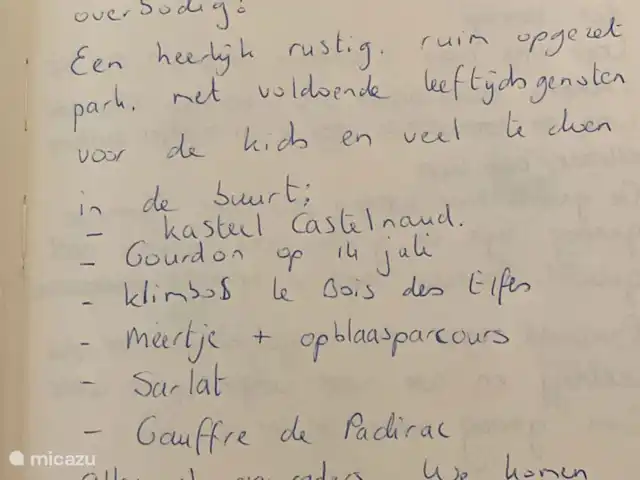 overbodig:
Een heerlijk rustig, ruim opgezet
park, met voldoende leeftijdsgenoten
voor de kids en veel te doen
in de buurt:
- kasteel Castelnaud.
- Gourdon op 14 juli
- klimbos le Bois des Elfes
- Meertje + opblaasparcours
- Sarlat
- Gouffre de Padirac
We komen
micazu